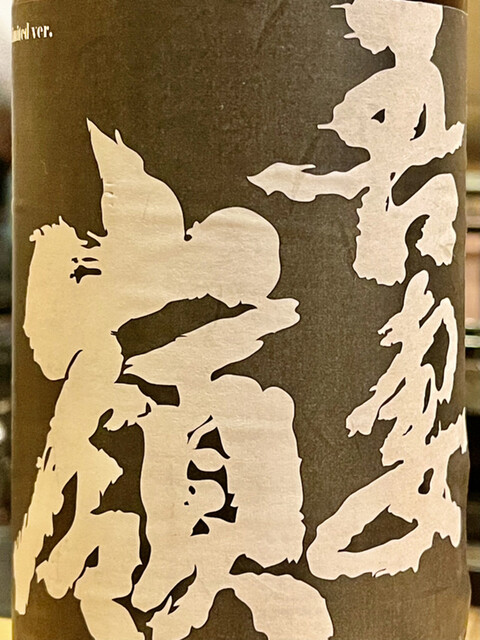 mited ver.
吾妻
嶺